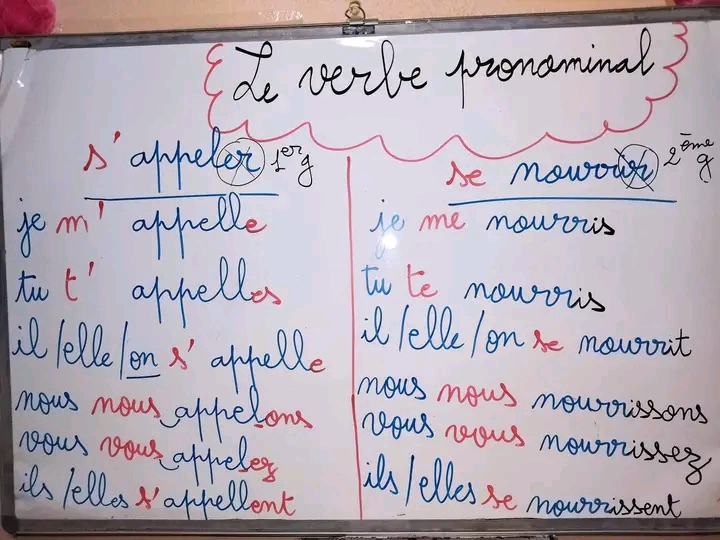 Le verbe pronominal
s' appeler 1er g
je m' appelle
tu t' appelles
il /elle /on s' appelle
nous nous appelons
vous vous appelez
ils /elles s' appellent
se nourrir 2ème g
je me nourris
tu te nourris
il /elle /on se nourrit
nous nous nourrissons
vous vous nourrissez
ils /elles se nourrissent